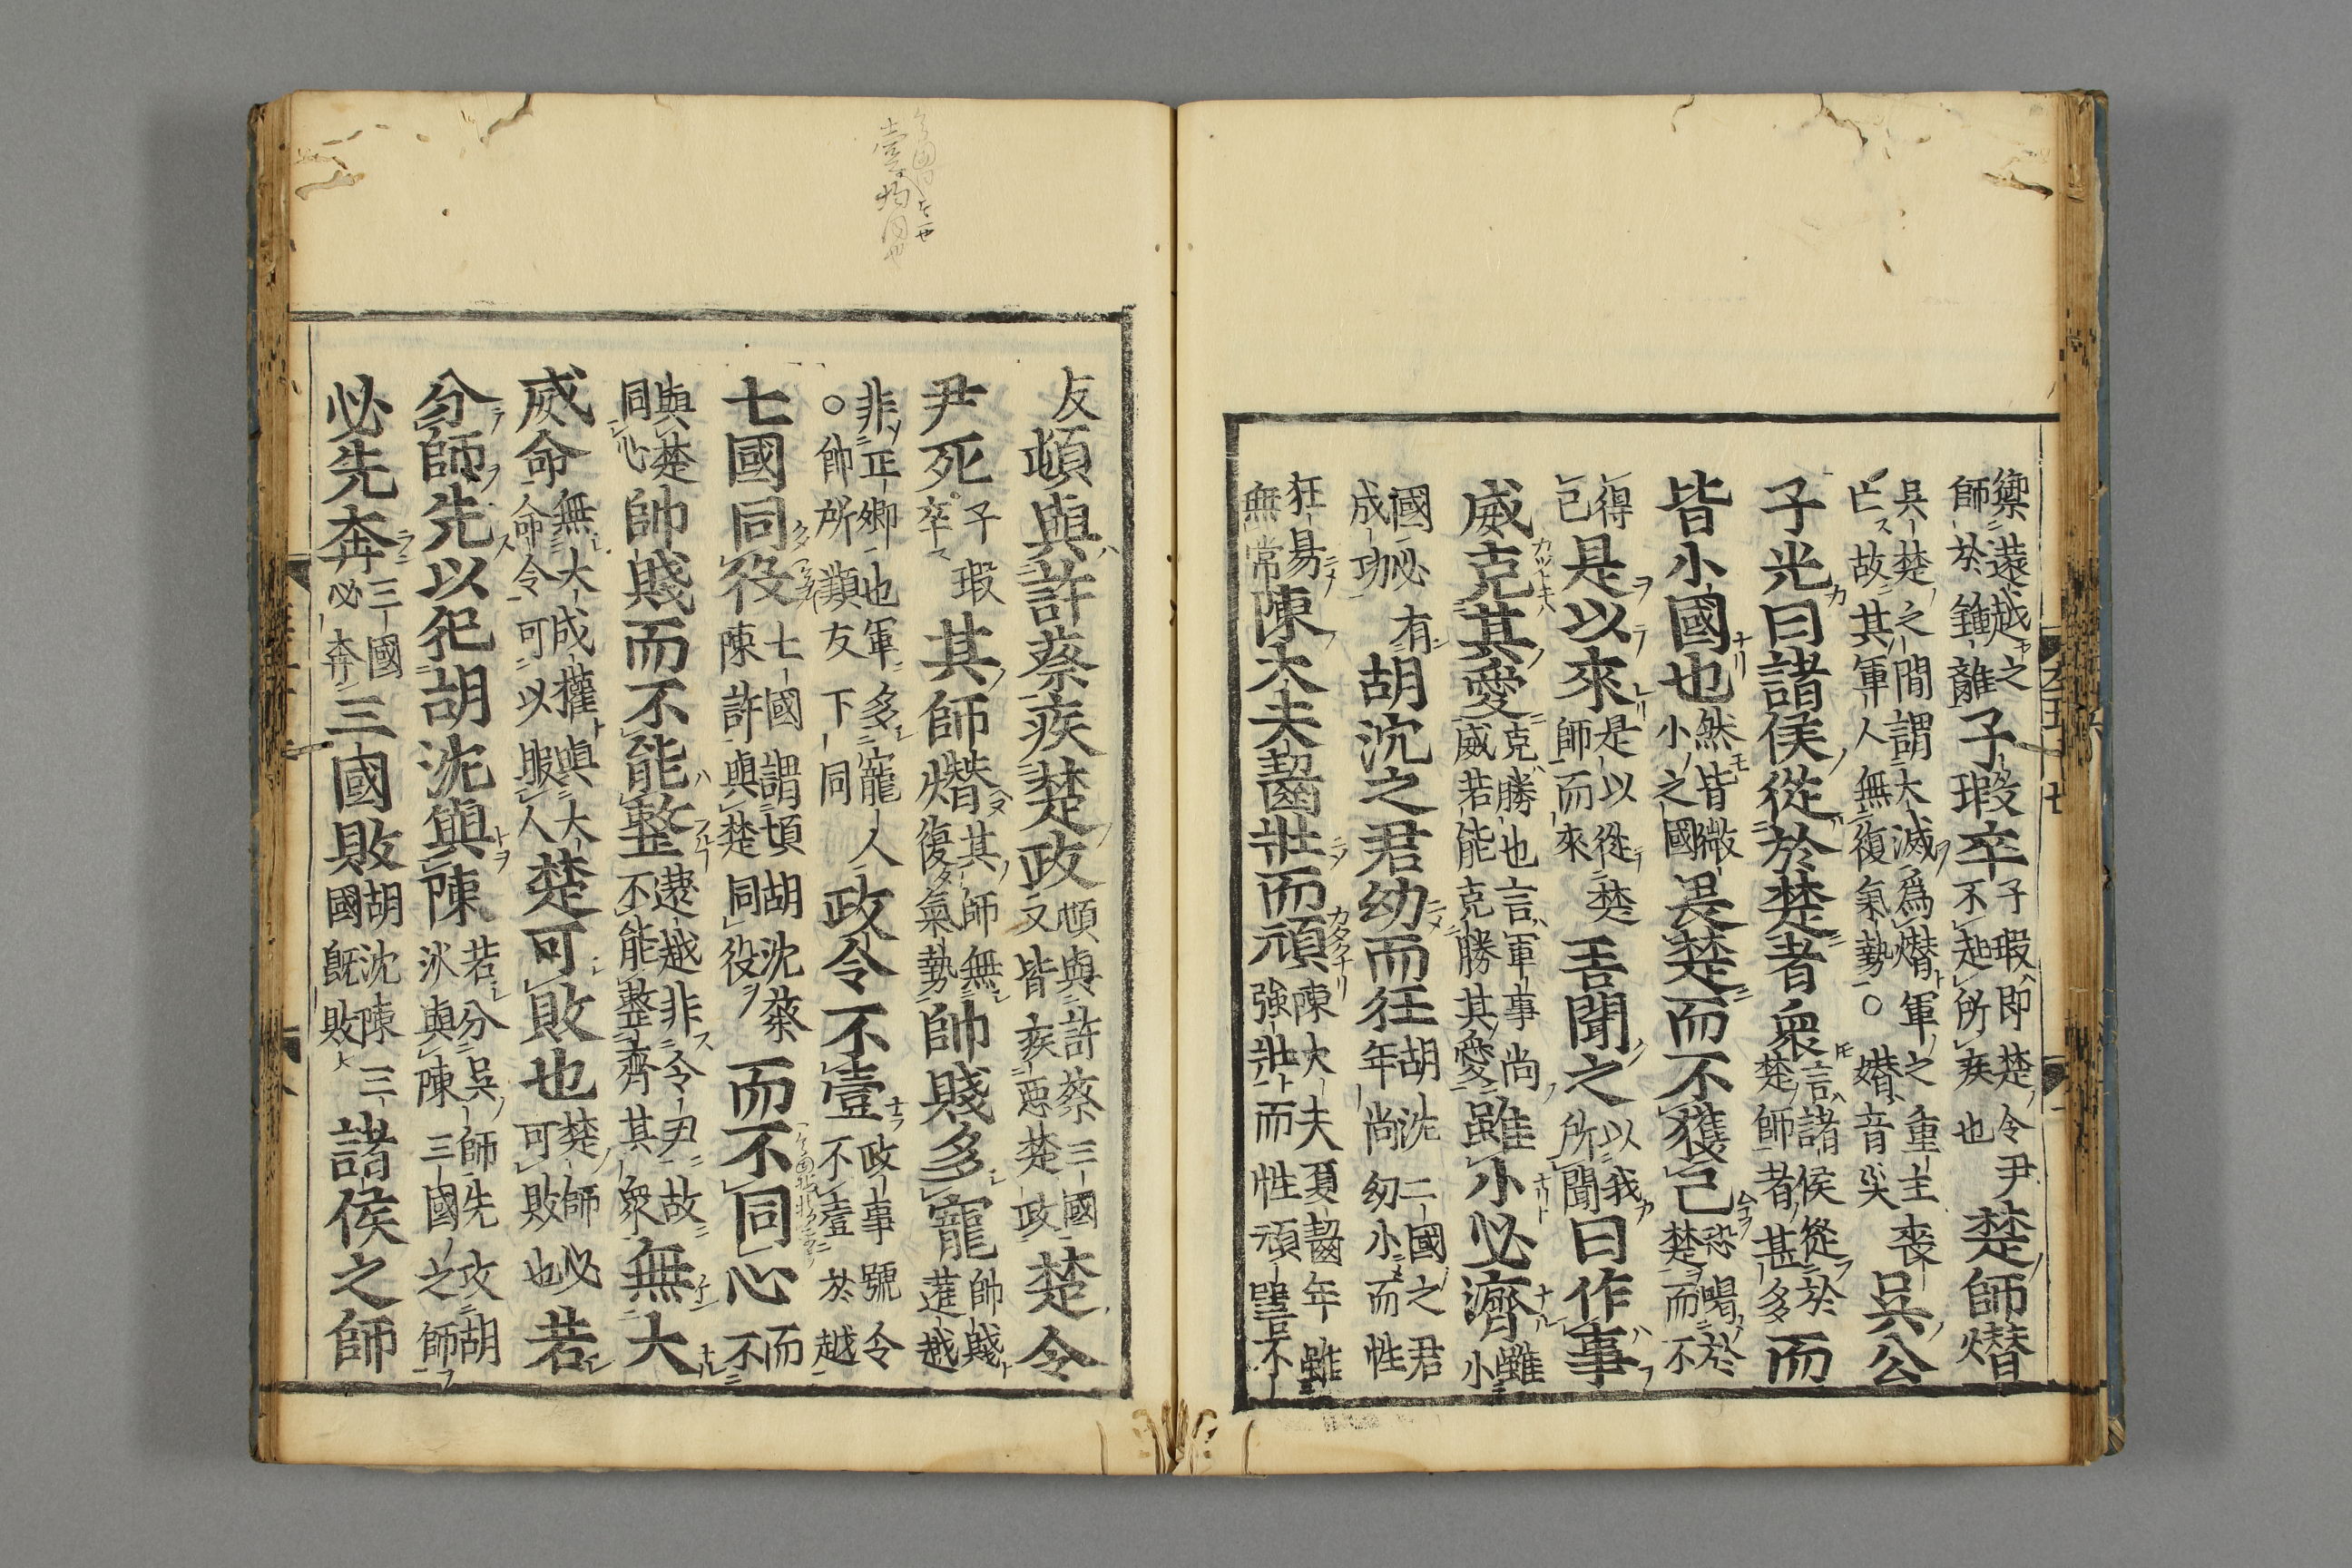 禦薳越之師於鍾離子瑕卒子瑕即楚令尹不起所疾也楚師熸
吳楚之間謂大滅爲熸軍之重主喪亡故其軍人無復氣勢○熸音尖吳公
子光曰諸侯從於楚者衆言諸侯從於楚師者甚多而
皆小國也然皆微小之國畏楚而不獲已恐暍於楚而不
得已是以來是以從楚師而來吾聞之以我所聞曰作事
威克其愛克勝也言軍事尚威若能克勝其愛雖小必濟雖小
國必有成功胡沈之君幼而狂胡沈二國之君年尚幼小而性
狂易無常陳大夫齧壯而頑陳大夫夏齧年雖強壯而性頑嚚不
友頓與許蔡疾楚政頓與許蔡三國又皆疾惡楚政楚令
尹死子瑕卒其師熸其師無復氣勢帥賤多寵帥賤薳越
非正卿也軍多寵人○帥所類友下同政令不壹政事號令不壹於越
七國同役七國謂頓胡沈蔡陳許與楚同役而不同心而不
與楚同心帥賤而不能整薳越非令尹故不能整齊其衆無大
威命無大成權與大命令可以服人楚可敗也楚師必可敗也若
分師先以犯胡沈與陳若分吳師先攻胡沈與陳三國之師
必先奔三國必奔三國敗胡沈陳三國既敗諸侯之師